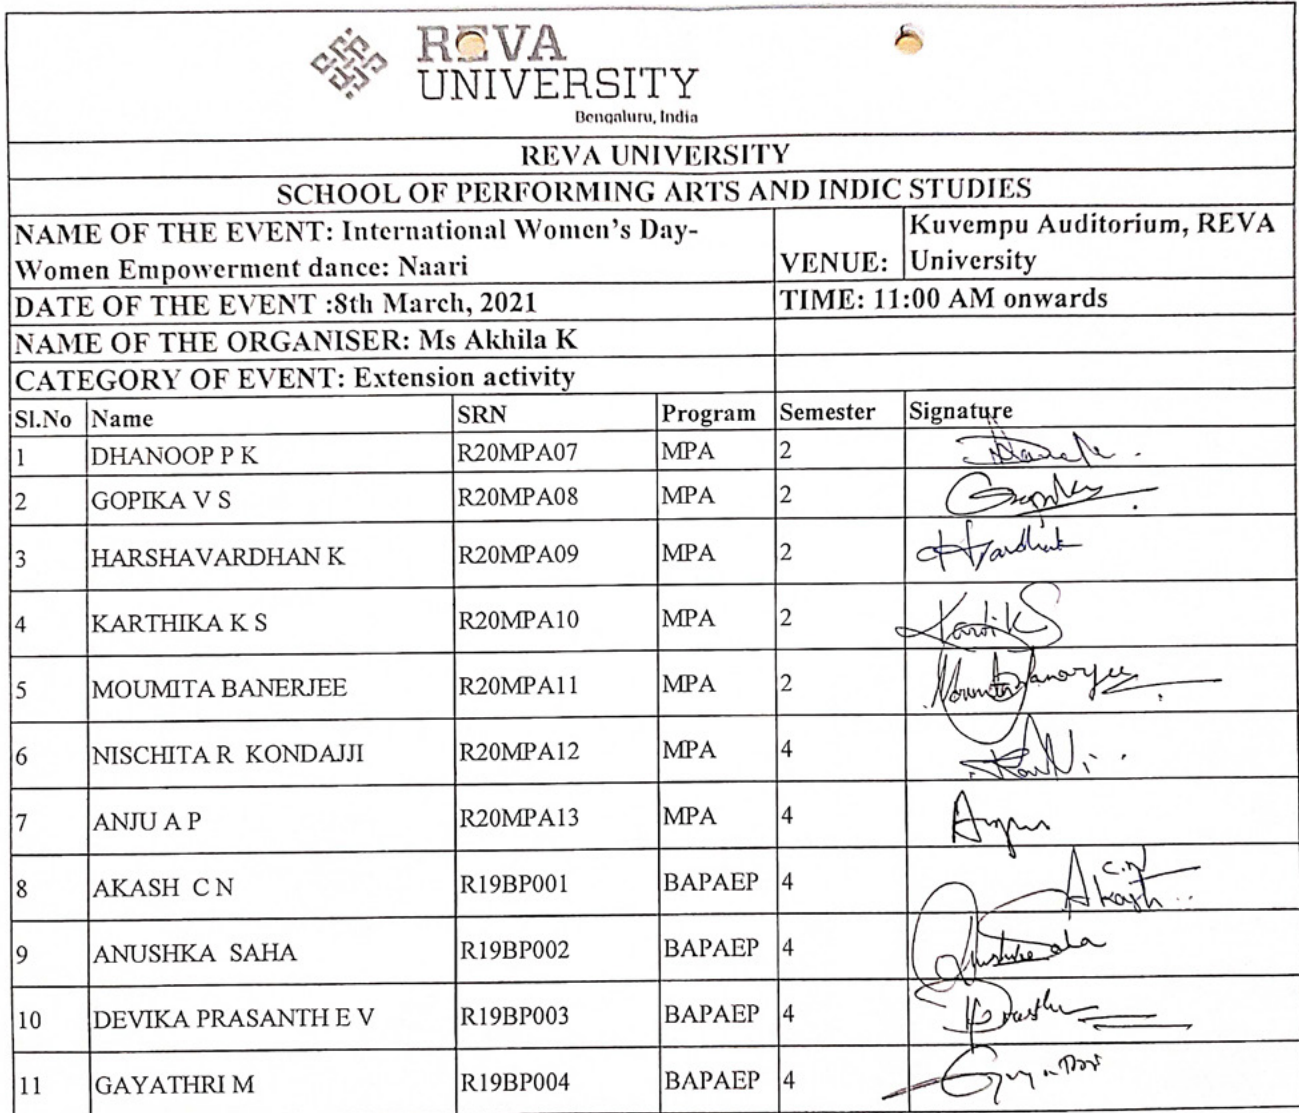 REVA
UNIVERSITY
Bengaluru, India
REVA UNIVERSITY
SCHOOL OF PERFORMING ARTS AND INDIC STUDIES
NAME OF THE EVENT: International Women's Day-
Women Empowerment dance: Naari
VENUE:
Kuvempu Auditorium, REVA
University
DATE OF THE EVENT :8th March, 2021
TIME: 11:00 AM onwards
NAME OF THE ORGANISER: Ms Akhila K
CATEGORY OF EVENT: Extension activity
Sl.No Name SRN Program Semester Signature
1 DHANOOP P K R20MPA07 MPA 2
2 GOPIKA V S R20MPA08 MPA 2
3 HARSHAVARDHAN K R20MPA09 MPA 2
4 KARTHIKA K S R20MPA10 MPA 2
5 MOUMITA BANERJEE R20MPA11 MPA 2
6 NISCHITA R KONDAJJI R20MPA12 MPA 4
7 ANJU A P R20MPA13 MPA 4
8 AKASH C N R19BP001 BAPAEP 4 C.N Akash
9 ANUSHKA SAHA R19BP002 BAPAEP 4
10 DEVIKA PRASANTH E V R19BP003 BAPAEP 4
11 GAYATHRI M R19BP004 BAPAEP 4